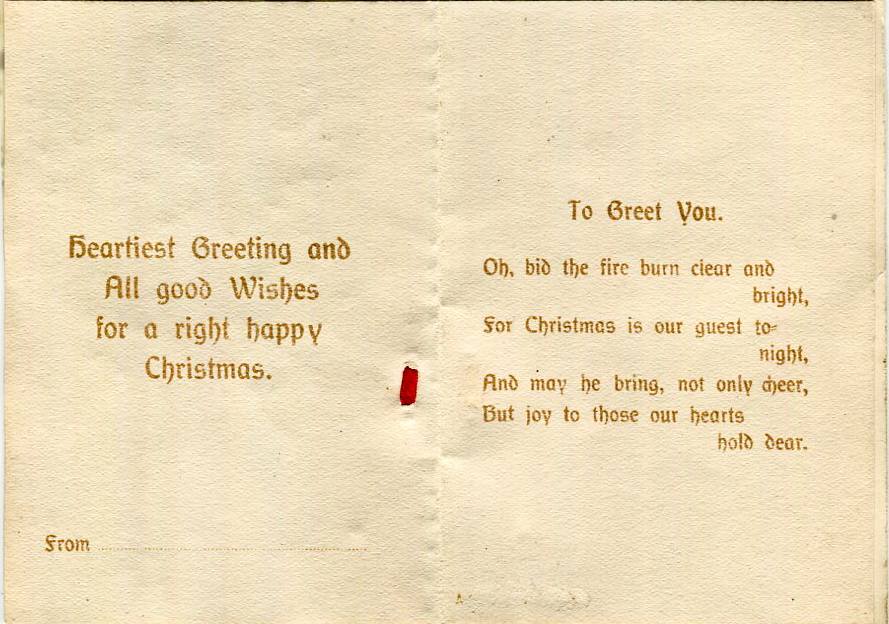 Heartiest Greeting and
All good Wishes
for a right happy
Christmas.
From
To Greet You.
Oh, bid the fire burn clear and
bright,
For Christmas is our guest to-
night,
And may he bring, not only cheer,
But joy to those our hearts
hold dear.